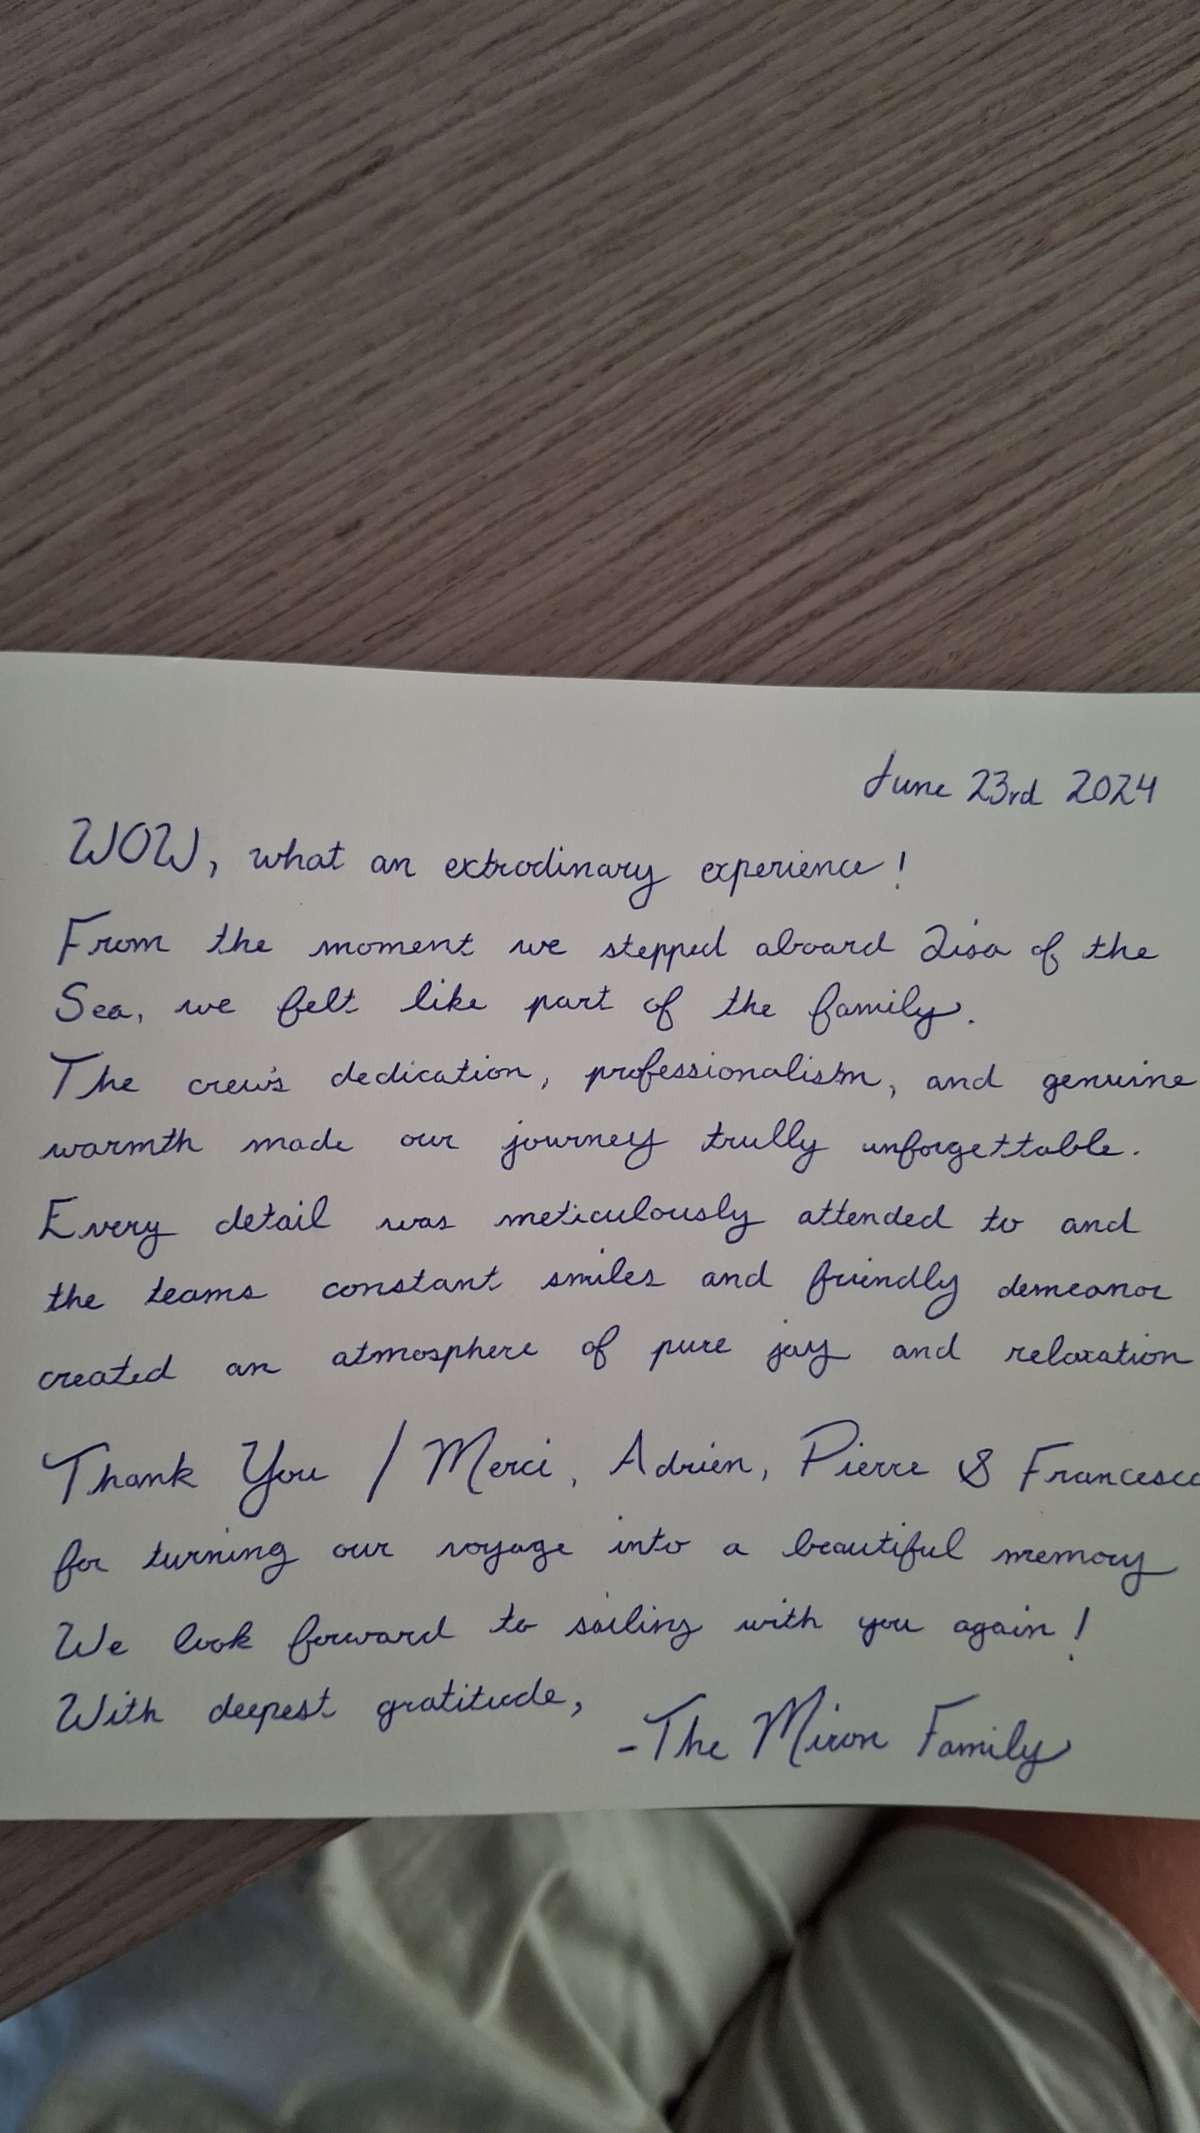 June 23rd 2024
WOW, what an extrodinary experience!
From the moment we stepped aboard Lisa of the
Sea, we felt like part of the family.
The crew's dedication, professionalism, and genuine
warmth made our journey trully unforgettable.
Every detail was meticulously attended to and
the teams constant smiles and friendly demeanor
created an atmosphere of pure joy and relaxation
Thank You / Merci, Adrien, Pierre & Francesco
for turning our voyage into a beautiful memory
We look forward to sailing with you again!
With deepest gratitude,
-The Miron Family